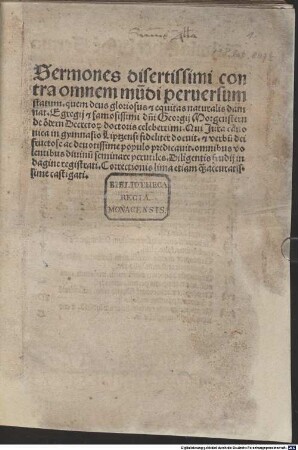 Sermones disertissimi con
tra omnem mūdi peruersum
statum. quem deus gloriosus ⁊ equitas naturalis dam
nat. Egregij ⁊ famosissimi dñi Georgij Morgenstern
de Decretoꝝ doctoris celeberrimi. Qui Iura cano
nica in gymnasio Liptzensi fideliter docuit. ⁊ verbū dei
fructose ac deuotissime populo predicauit. omnibus vo
lentibus diuinū seminare perutiles. Diligentis studij in
dagine registrati. Correctionis lima etiam accuratis
sime castigati.
BIBLIOTHECA
REGIA
MONACENSIS.